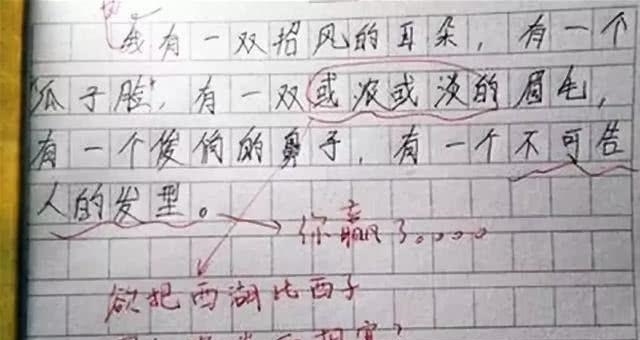 我有一双招风的耳朵，有一个
"瓜子脸"，有一双或浓或淡的眉毛，
有一个俊俏的鼻子，有一个不可告
人的发型。
你赢了。。。。
欲把西湖比西子